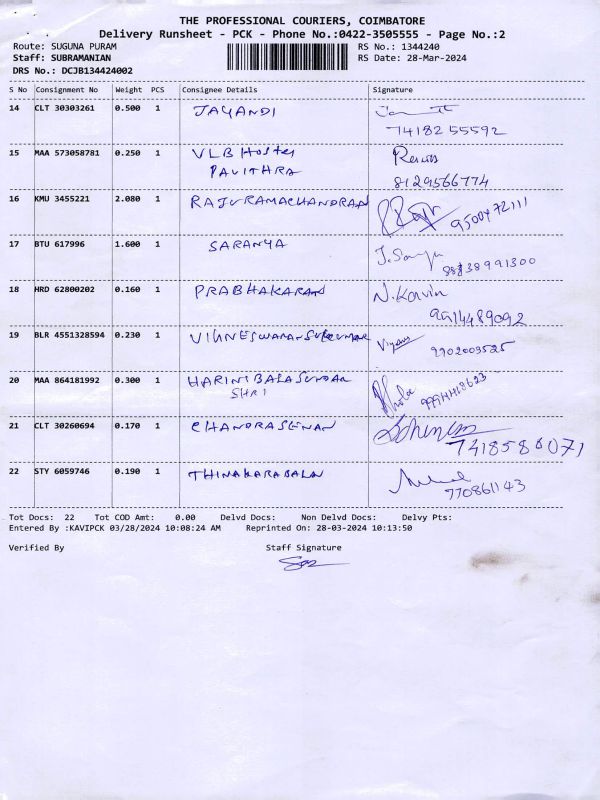 THE PROFESSIONAL COURIERS, COIMBATORE
Delivery Runsheet - PCK - Phone No.:0422-3505555 - Page No.:2
Route: SUGUNA PURAM RS No.: 1344240
Staff: SUBRAMANIAN RS Date: 28-Mar-2024
DRS No.: DCJB134424002
S No Consignment No Weight PCS Consignee Details Signature
14 CLT 30303261 0.500 1 JAYANDI
74182 55592
15 MAA 573058781 0.250 1 VLB Hostel
PAVITHRA
8129566774
16 KMU 3455221 2.080 1 RAJURAMACHANDRAN
9500472111
17 BTU 617996 1.600 1 SARANYA
18 HRD 62800202 0.160 1 PRABHAKARAN N. Kavin
9514489092
19 BLR 4551328594 0.230 1
9702003525
20 MAA 864181992 0.300 1 HARINIBALASUNDAR
SHRI
21 CLT 30260694 0.170 1 CHANDRASENAN
7418586071
22 STY 6059746 0.190 1 THINAKARABALAN
770861143
Tot Docs: 22 Tot COD Amt: 0.00 Delvd Docs: Non Delvd Docs: Delvy Pts:
Entered By :KAVIPCK 03/28/2024 10:08:24 AM Reprinted On: 28-03-2024 10:13:50
Verified By Staff Signature